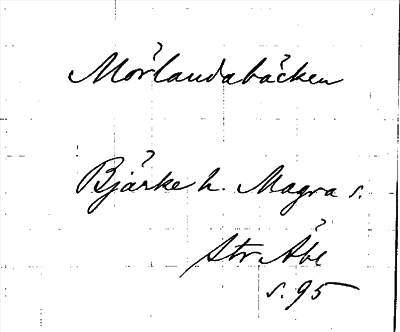 Mörlandabäcken
Bjärke h. Magra s.
Str Åbe
s. 95